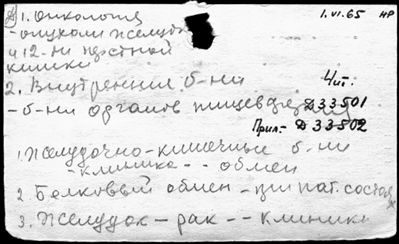 1. Онкология 1.VI.65 НР
- опухоли желудка
и 12-ти перстной
кишки
2. Внутренния б-ни Чит:
- б-ни органов пищеварения Д33501
Прил.- Д33502
1. Желудочно-кишечные б-ни
- клиника - - обмен
2. Белковый обмен - при пат. состоя
3. Желудок - рак - - клиника